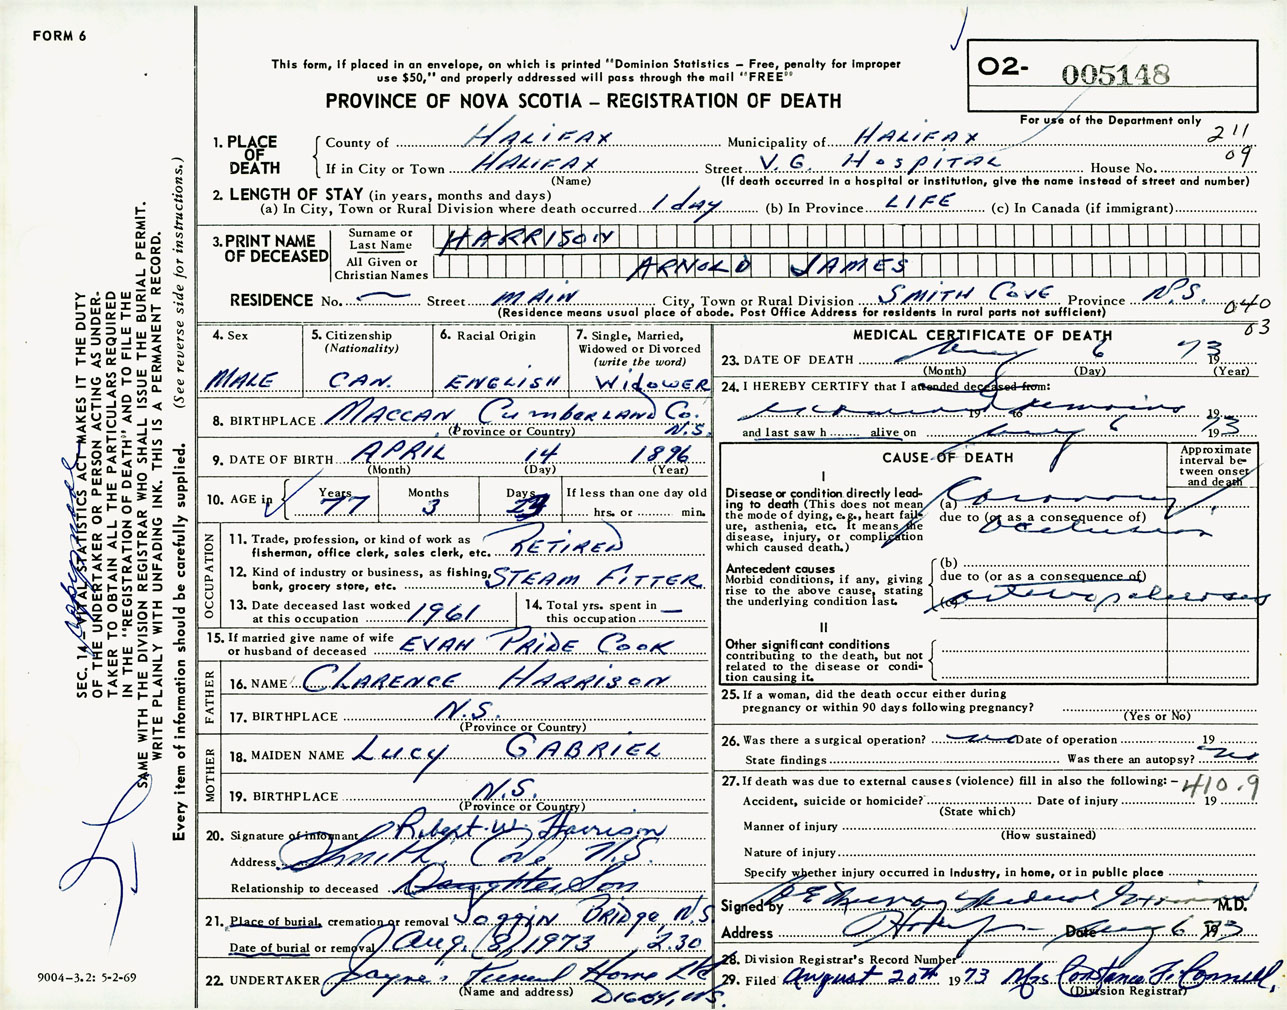 FORM 6
This form, if placed in an envelope, on which is printed "Dominion Statistics – Free, penalty for improper
use $50," and properly addressed will pass through the mail "FREE"
O2- 005148
PROVINCE OF NOVA SCOTIA – REGISTRATION OF DEATH
For use of the Department only
211
09
1. PLACE OF DEATH
County of HALIFAX Municipality of HALIFAX
If in City or Town HALIFAX Street V.G. HOSPITAL House No.
(Name) (If death occurred in a hospital or institution, give the name instead of street and number)
2. LENGTH OF STAY (in years, months and days)
(a) In City, Town or Rural Division where death occurred 1 day (b) In Province LIFE (c) In Canada (if immigrant)
3. PRINT NAME OF DECEASED
Surname or Last Name HARRISON
All Given or Christian Names ARNOLD JAMES
RESIDENCE No. — Street MAIN City, Town or Rural Division SMITH COVE Province N.S.
(Residence means usual place of abode. Post Office Address for residents in rural parts not sufficient)
040
03
4. Sex
MALE
5. Citizenship
(Nationality)
CAN.
6. Racial Origin
ENGLISH
7. Single, Married,
Widowed or Divorced
(write the word)
WIDOWER
8. BIRTHPLACE MACCAN CUMBERLAND CO. N.S.
(Province or Country)
9. DATE OF BIRTH APRIL 14 1896
(Month) (Day) (Year)
10. AGE in Years 77 Months 3 Days
If less than one day old
hrs. or min.
OCCUPATION
11. Trade, profession, or kind of work as
fisherman, office clerk, sales clerk, etc. RETIRED
12. Kind of industry or business, as fishing,
bank, grocery store, etc. STEAM FITTER
13. Date deceased last worked
at this occupation 1961
14. Total yrs. spent in
this occupation —
15. If married give name of wife
or husband of deceased EVAH PRIDE COOK
FATHER
16. NAME CLARENCE HARRISON
17. BIRTHPLACE N.S.
(Province or Country)
MOTHER
18. MAIDEN NAME LUCY GABRIEL
19. BIRTHPLACE N.S.
(Province or Country)
20. Signature of informant Robert W. Harrison
Address Smith Cove N.S.
Relationship to deceased Daughter Son
21. Place of burial, cremation or removal Joggin Bridge, N.S.
Date of burial or removal Aug. 8, 1973 2.30
22. UNDERTAKER Jayne's Funeral Home Ltd
(Name and address) DIGBY, N.S.
MEDICAL CERTIFICATE OF DEATH
23. DATE OF DEATH Aug 6 1973
(Month) (Day) (Year)
24. I HEREBY CERTIFY that I attended deceased from:
examined remains 19 19
and last saw h alive on Aug 6 1973
CAUSE OF DEATH
Approximate
interval be-
tween onset
and death
I
Disease or condition directly lead-
ing to death (This does not mean
the mode of dying, e.g., heart fail-
ure, asthenia, etc. It means the
disease, injury, or complication
which caused death.)
(a) Coronary
due to (or as a consequence of)
occlusion
Antecedent causes
Morbid conditions, if any, giving
rise to the above cause, stating
the underlying condition last.
(b)
due to (or as a consequence of)
(c) arteriosclerosis
II
Other significant conditions
contributing to the death, but not
related to the disease or condi-
tion causing it.
25. If a woman, did the death occur either during
pregnancy or within 90 days following pregnancy?
(Yes or No)
26. Was there a surgical operation? no Date of operation 19
State findings Was there an autopsy? no
27. If death was due to external causes (violence) fill in also the following: –
410.9
Accident, suicide or homicide? Date of injury 19
(State which)
Manner of injury
(How sustained)
Nature of injury
Specify whether injury occurred in Industry, in home, or in public place
Signed by Medical Examiner M.D.
Address Date Aug 6 1973
28. Division Registrar's Record Number
29. Filed August 20th 1973 Mrs Constance F. Connell,
(Division Registrar)
SEC. 14 – VITAL STATISTICS ACT MAKES IT THE DUTY
OF THE UNDERTAKER OR PERSON ACTING AS UNDER-
TAKER TO OBTAIN ALL THE PARTICULARS REQUIRED
IN THE "REGISTRATION OF DEATH" AND TO FILE THE
SAME WITH THE DIVISION REGISTRAR WHO SHALL ISSUE THE BURIAL PERMIT.
WRITE PLAINLY WITH UNFADING INK. THIS IS A PERMANENT RECORD.
Every item of information should be carefully supplied. (See reverse side for instructions.)
9004-3.2: 5-2-69